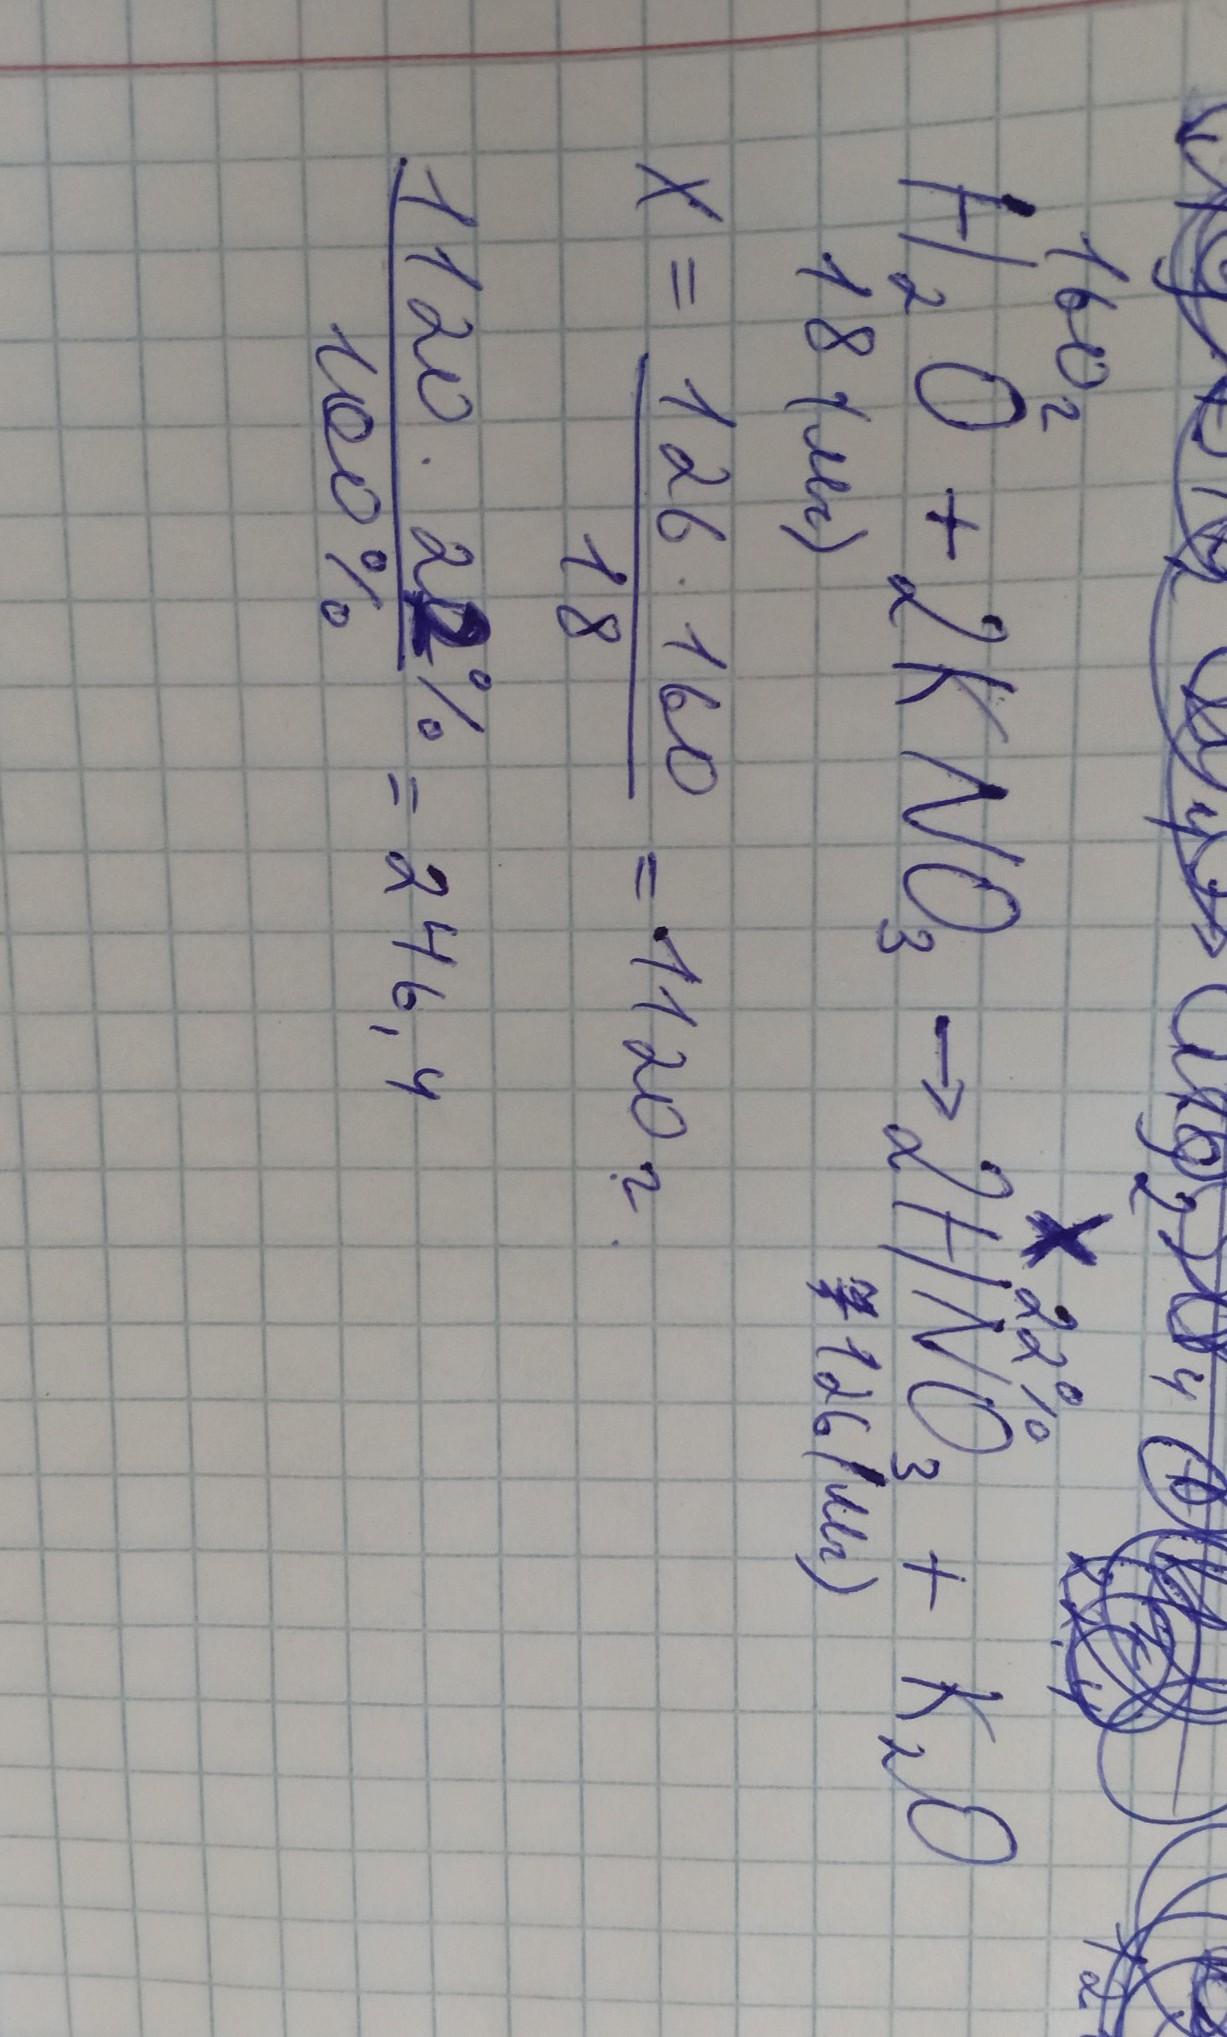 160г X 22%
H₂O + 2KNO₃ → 2HNO₃ + K₂O
18 (мг) 126 (мг)
X = 126 · 160 / 18 = 1120г.
1120 · 22% / 100% = 246,4